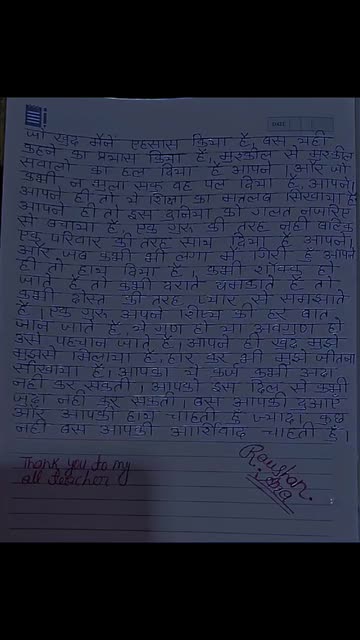 जो खुद मैनें एहसास किया है, बस यही
कहने का प्रयास किया है, मुश्कील से मुश्कील
सवालो का हल दिया है आपने, और जो
कभी न भुला सक वह पल दिया है, आपने,
आपने ही तो ये शिक्षा का मतलब सिखाया है
आपने ही तो इस दुनिया को गलत नजरिए
से बचाया है, एक गुरू की तरह नही बल्कि
एक परिवार की तरह साथ दिया है आपने।
और जब कभी भी लगा मैं गिरी हूँ आपने
ही तो हाथ दिया है, कभी शॉक्क हो
जाते है तो कभी डराते धमकाते है तो
कभी दोस्त की तरह प्यार से समझाते
है। एक गुरू अपने शिष्य की हर बात
जान जाते है, ये गुण हो या अवगुण हो
उसे पहचान जाते है, आपने ही खुद मुझे
मुझसे मिलाया है, हार कर भी मुझे जीतना
सीखाया है, आपका ये कर्ज कभी अदा
नही कर सकती। आपको इस दिल से कभी
जुदा नही कर सकती। बस आपकी दुआएँ
और आपका हाथ चाहती हूँ ज्यादा कुछ
नही बस आपकी आर्शिवाद चाहती हूँ।
Thank you to my
all teacher
Raushan